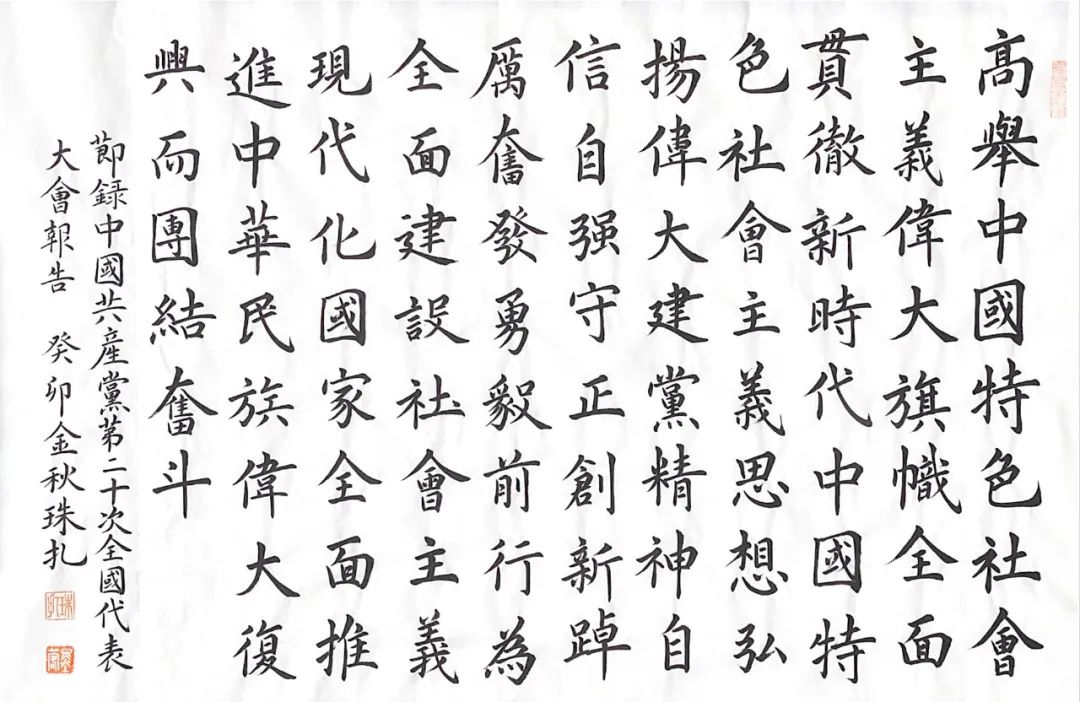 高舉中國特色社會
主義偉大旗幟全面
貫徹新時代中國特
色社會主義思想弘
揚偉大建黨精神自
信自强守正創新踔
厲奮發勇毅前行為
全面建設社會主義
現代化國家全面推
進中華民族偉大復
興而團結奮斗
節録中國共產黨第二十次全國代表
大會報告 癸卯金秋珠扎